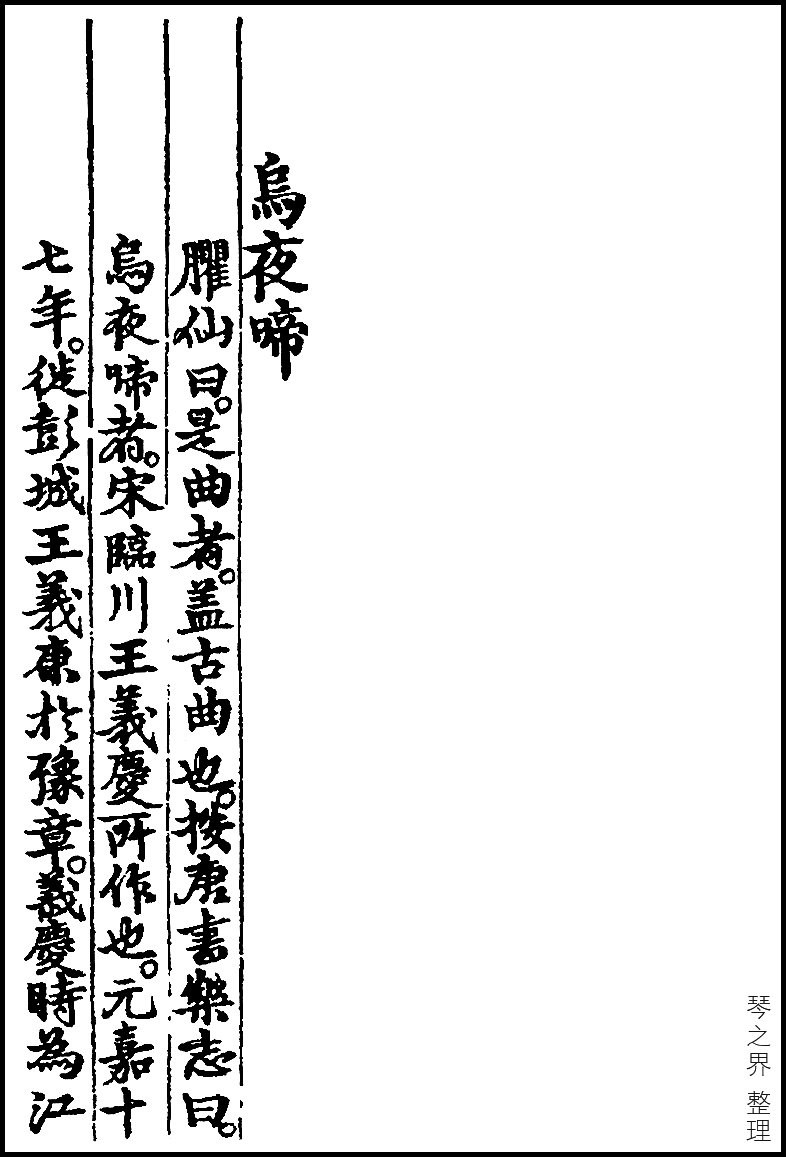 烏夜啼
臞仙曰。是曲者。盖古曲也。按唐書樂志曰。
烏夜啼者。宋臨川王義慶所作也。元嘉十
七年。徙彭城王義康於豫章。義慶時為江
琴之界 整理